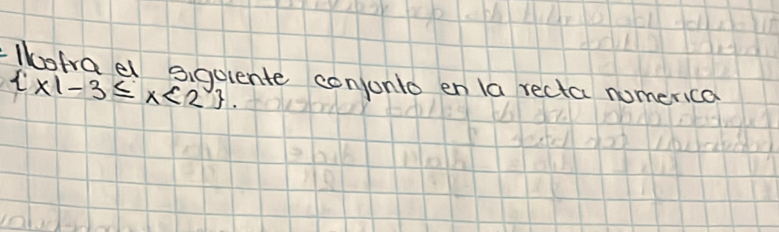 - Ilustra el siguiente conjunto en la recta numerica
{x|-3≤x<2}.